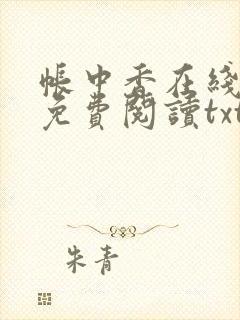 帳中香在綫
免費閱讀txt
朱青